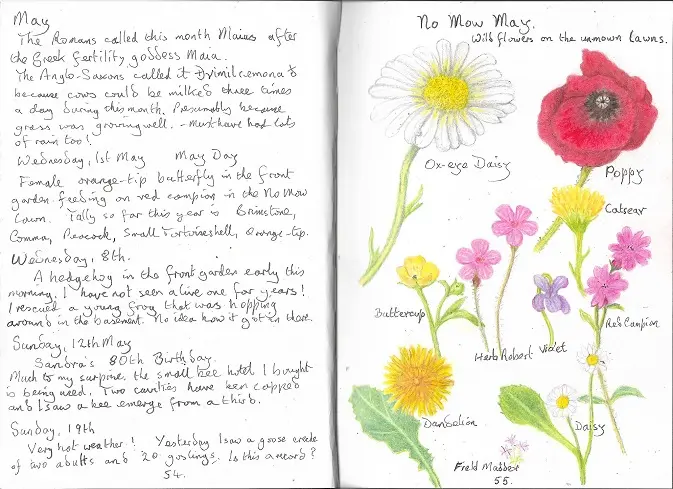 May
The Romans called this month Maius after
the Greek fertility goddess Maia.
The Anglo-Saxons called it
because cows could be milked three times
a day during this month. Presumably because
grass was growing well. - Must have had lots
of rain too!
Wednesday, 1st May May Day
Female orange-tip butterfly in the front
garden feeding on red campion in the No Mow
Lawn. Tally so far this year is Brimstone,
Comma, Peacock, Small Tortoiseshell, Orange-tip.
Wednesday, 8th.
A hedgehog in the front garden early this
morning. I have not seen a live one for years!
I rescued a young frog that was hopping
around in the basement. No idea how it got in there.
Sunday, 12th May
Sandra's 80th Birthday.
Much to my surprise, the small bee hotel I bought
is being used. Two cavities have been capped
and I saw a bee emerge from a third.
Sunday, 19th
Very hot weather! Yesterday I saw a goose creche
of two adults and 20 goslings. Is this a record?
54.
No Mow May.
Wild flowers on the unmown lawns.
Ox-eye Daisy
Poppy
Catsear
Buttercup
Herb Robert
Violet
Red Campion
Dandelion
Daisy
Field Madder
55.